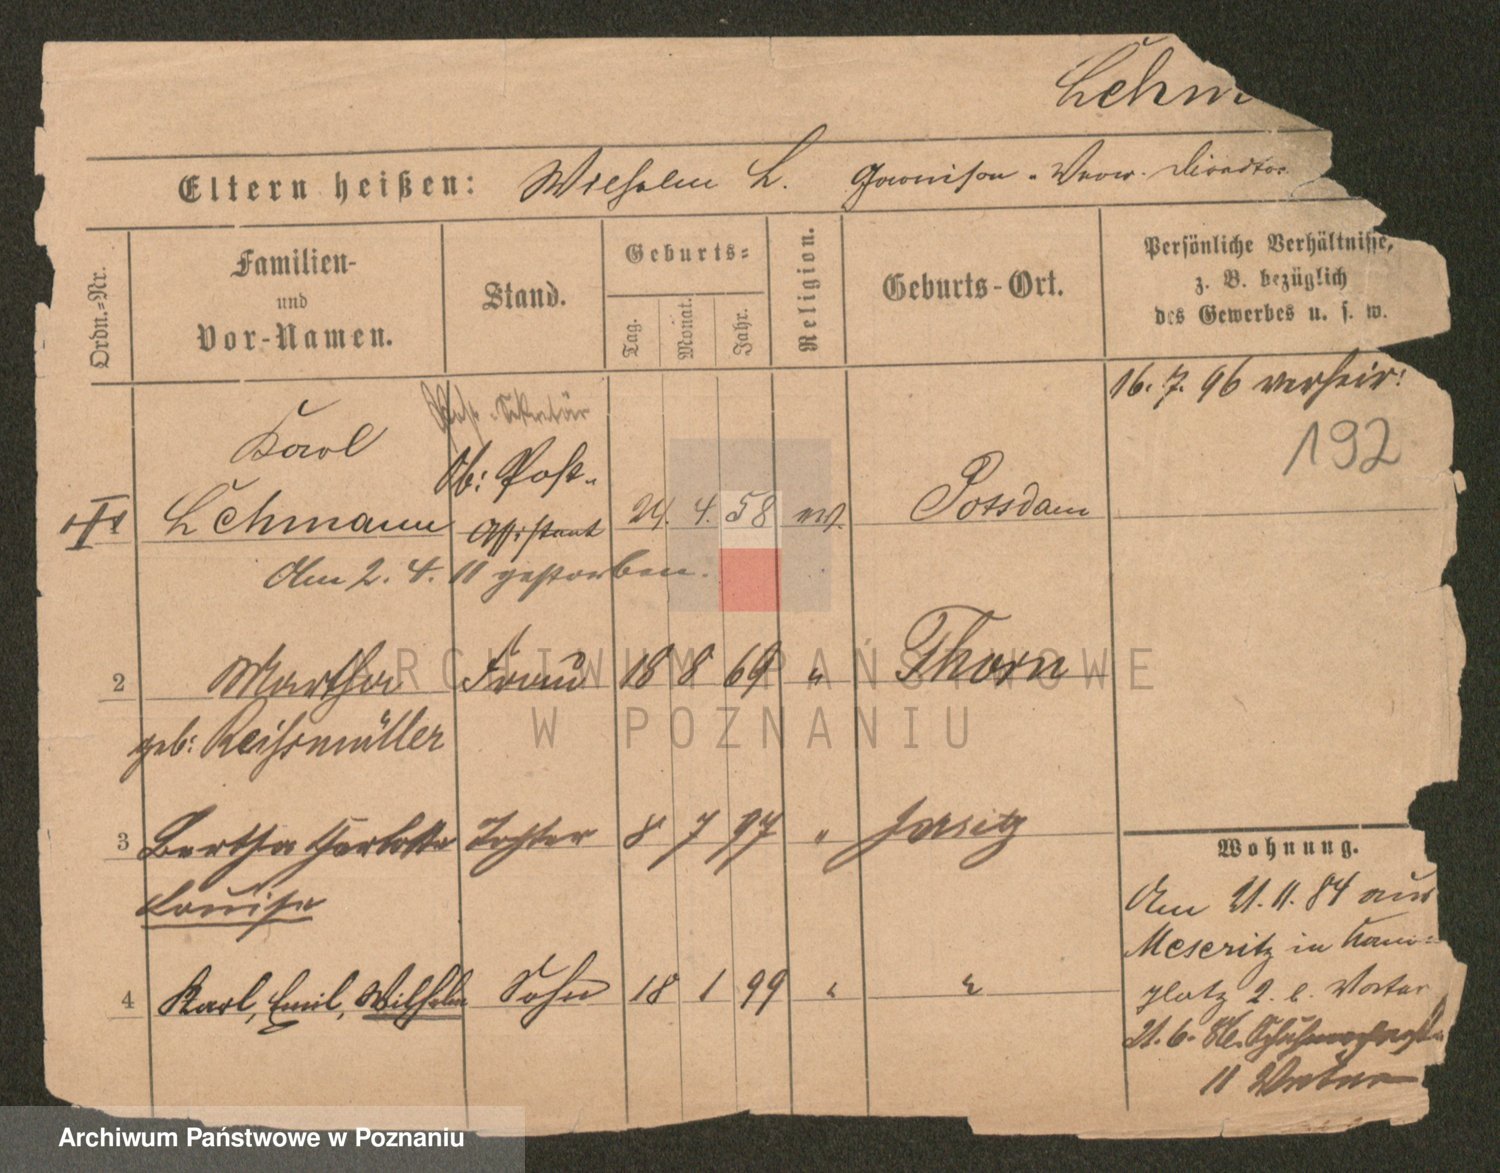 Lehm
Eltern heißen: Wilhelm L. Garnison-Verw. Direktor
Ordn.-Nr.
Familien-
und
Vor-Namen.
Stand.
Geburts-
Tag.
Monat.
Jahr.
Religion.
Geburts-Ort.
Persönliche Verhältnisse,
z. B. bezüglich
des Gewerbes u. s. w.
16. 7. 96 verheir:
192
Post-Sekretär
Karl
Ob: Post-
Lehmann Assistent 24. 4. 58 ev. Potsdam
Am 2. 4. 11 gestorben.
2 Martha Frau 18 8 69 " Thorn
geb: Reissmüller
3 Bertha Charlotte Tochter 8 7 97 " Jersitz
Louise
4 Karl, Emil, Wilhelm Sohn 18 1 99 " "
Wohnung.
Am 21. 11. 84 aus
Meseritz in
platz 2. b.
21. 6. 86.
11
ARCHIWUM PAŃSTWOWE
W POZNANIU
Archiwum Państwowe w Poznaniu